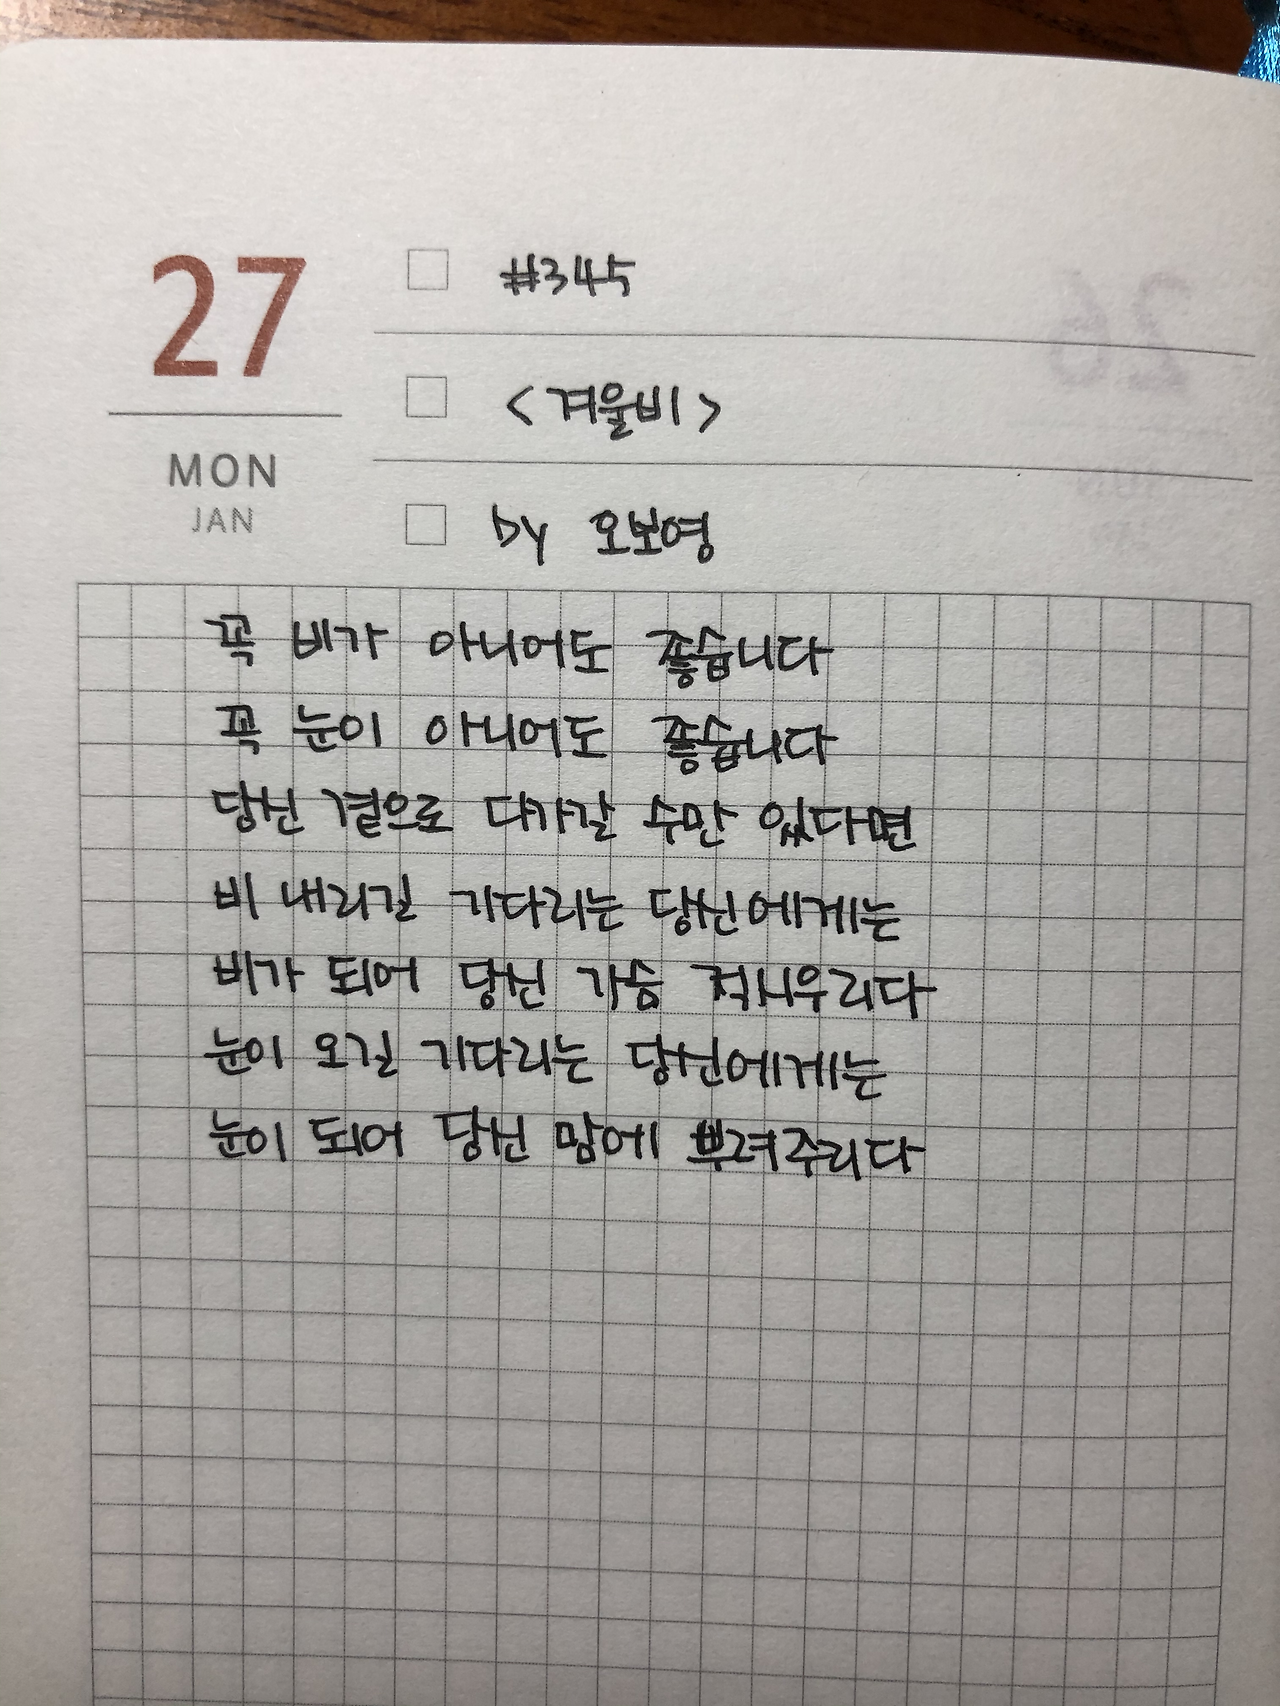 27
MON
JAN
#345
<겨울비>
by 오보영
꼭 비가 아니어도 좋습니다
꼭 눈이 아니어도 좋습니다
당신 곁으로 다가갈 수만 있다면
비 내리길 기다리는 당신에게는
비가 되어 당신 가슴 적시우리다
눈이 오길 기다리는 당신에게는
눈이 되어 당신 맘에 뿌려주리다